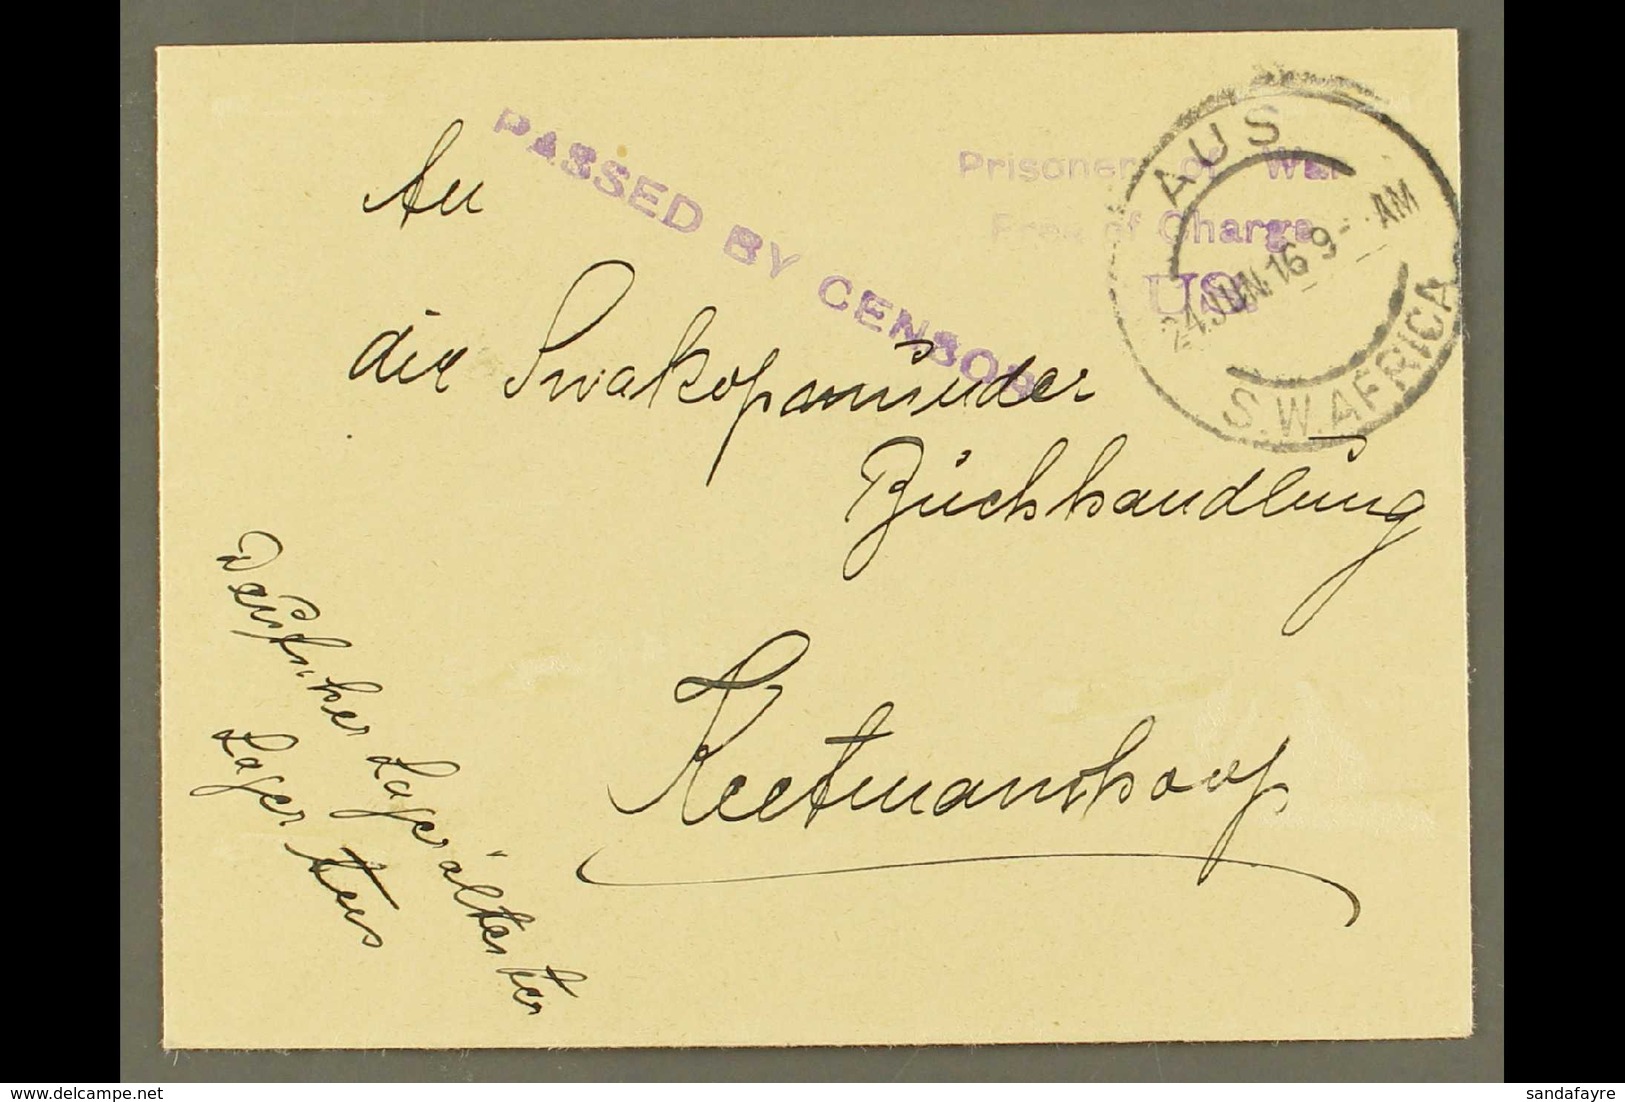 PASSED BY CENSOR
Prisoner of War
Free of Charge
AUS
24 JUN 16 9- AM
S.W. AFRICA
An
die Swakopmunder
Buchhandlung
Keetmanshoop
Deutscher Lagerältester
Lager Aus
delcampe.net
sandafayre